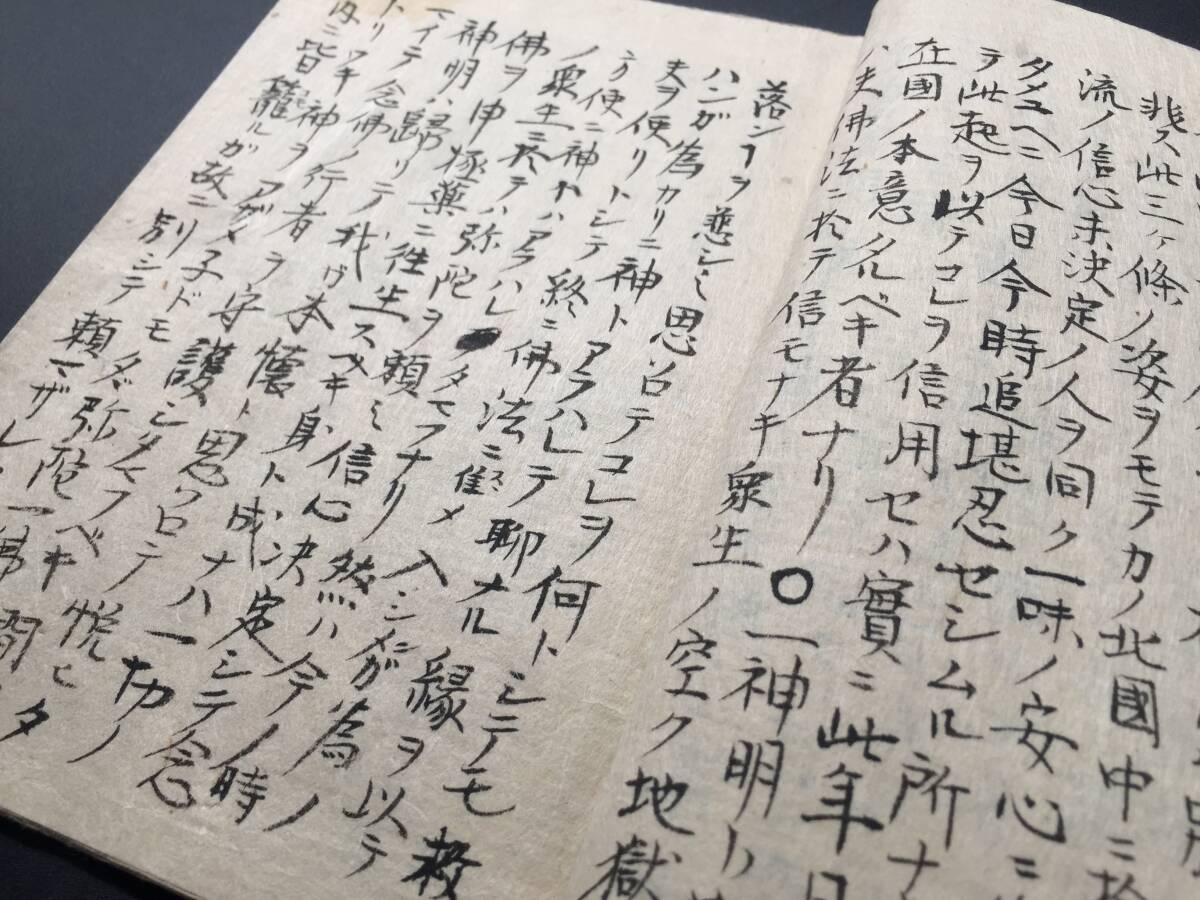 非ス此三ヶ條ノ姿ヲモテカノ北國中ニ於
流ノ信心未決定ノ人ヲ同ク一味ノ安心ニ
タユヘニ今日今時迠堪忍セシムル所ナ
ヲ此起ヲ以テコレヲ信用セハ實ニ此年
在國ノ本意タルベキ者ナリ〇一神明ト
ハ夫佛法ニ於テ信モナキ衆生ノ空ク地獄
落ンヿヲ悲シミ思召テコレヲ何トシテモ救
ハンガ為カリニ神トアラハレテ聊ナル縁ヲ以テ
夫ヲ便リトシテ終ニ佛法ニ勸メ入シメンガ為ノ
方便ニ神トハアラハレタマフナリ然ハ今ノ時
ノ衆生ニ於テハ弥陀ヲ頼ミ信心決定シテ念
佛ヲ申極楽ニ徃生スベキ身ト成ナハ一切ノ
神明ハ歸リテ我ガ本懐ト思召テ悦ヒ
マイテ念佛ノ行者ヲ守護シタマフベキ
トリワキ神ヲアガメ子ドモタダ弥陀一佛
内ニ皆籠ルガ故ニ別シテ頼マザレ